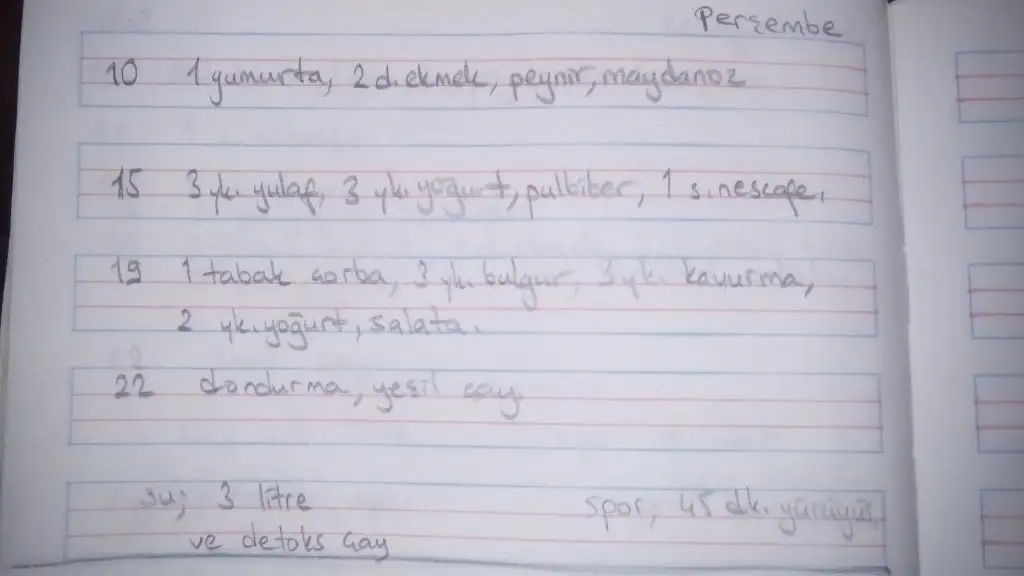 Perşembe
10 1 yumurta, 2 d. ekmek, peynir, maydanoz
15 3 yk. yulaf, 3 yk. yoğurt, pulbiber, 1 s. nescafe.
19 1 tabak çorba, 3 yk. bulgur, 3 yk. kavurma,
2 yk. yoğurt, salata.
22 dondurma, yeşil çay
su; 3 litre
spor, 45 dk. yürüyüş
ve detoks çay